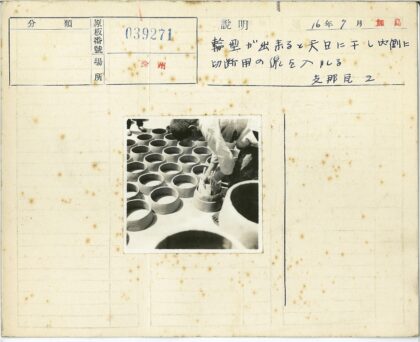 分類
原板番號
039271
場所
説明
16年7月
輪型が出来ると天日に干し内側に
切断用の線を入れる
支那瓦